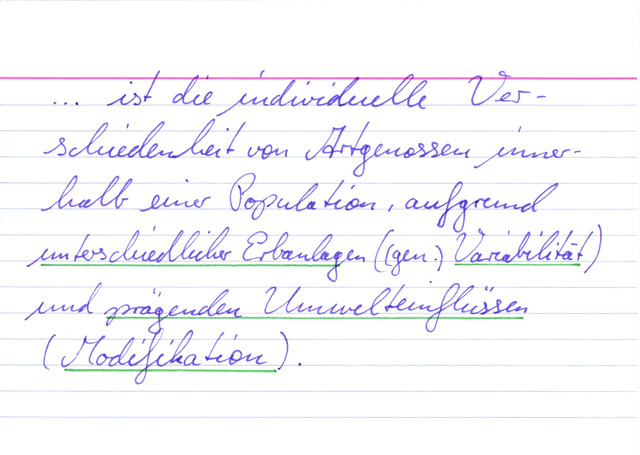 ... ist die individuelle Ver-
schiedenheit von Artgenossen inner-
halb einer Population, aufgrund
unterschiedlicher Erbanlagen ((gen.) Variabilität)
und prägenden Umwelteinflüssen
(Modifikation).